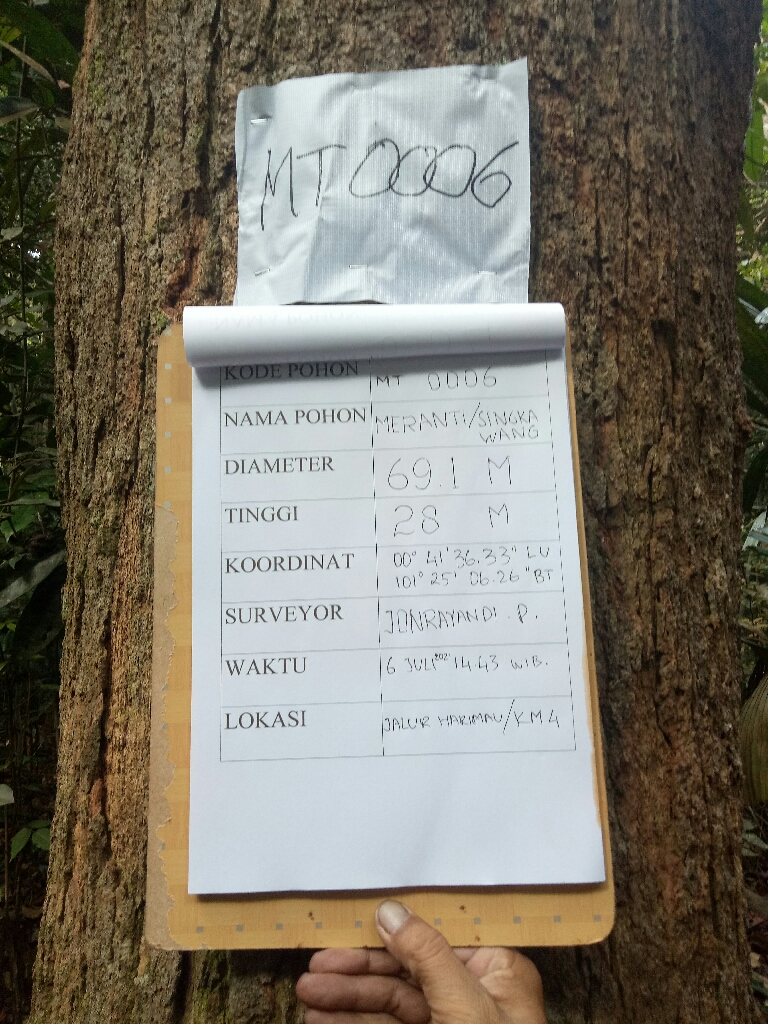 MT 0006
KODE POHON MT 0006
NAMA POHON MERANTI/SINGKA
WANG
DIAMETER 69.1 M
TINGGI 28 M
KOORDINAT 00° 41' 36.33" LU
101° 25' 06.26 "BT
SURVEYOR JONRAYANDI . P.
WAKTU 6 JULI 2021 14.43 WIB.
LOKASI JALUR HARIMAU/KM 4